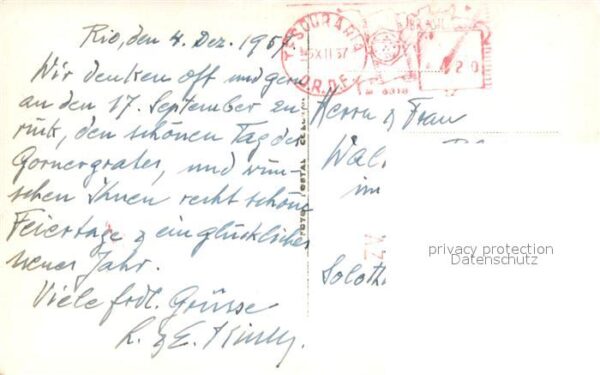 Rio, den 4. Dez. 1957
Wir denken oft und gern
an den 17. September zu-
rück, den schönen Tag des
Gornergrates, und wün-
schen Ihnen recht schöne
Feiertage & ein glückliches
neues Jahr.
Viele frdl. Grüsse
L. & E.
TESOURARIA
XII 57
D.R.D.F.
BRASIL
FOTO POSTAL
Herrn & Frau
Wal
im
Soloth
privacy protection
Datenschutz